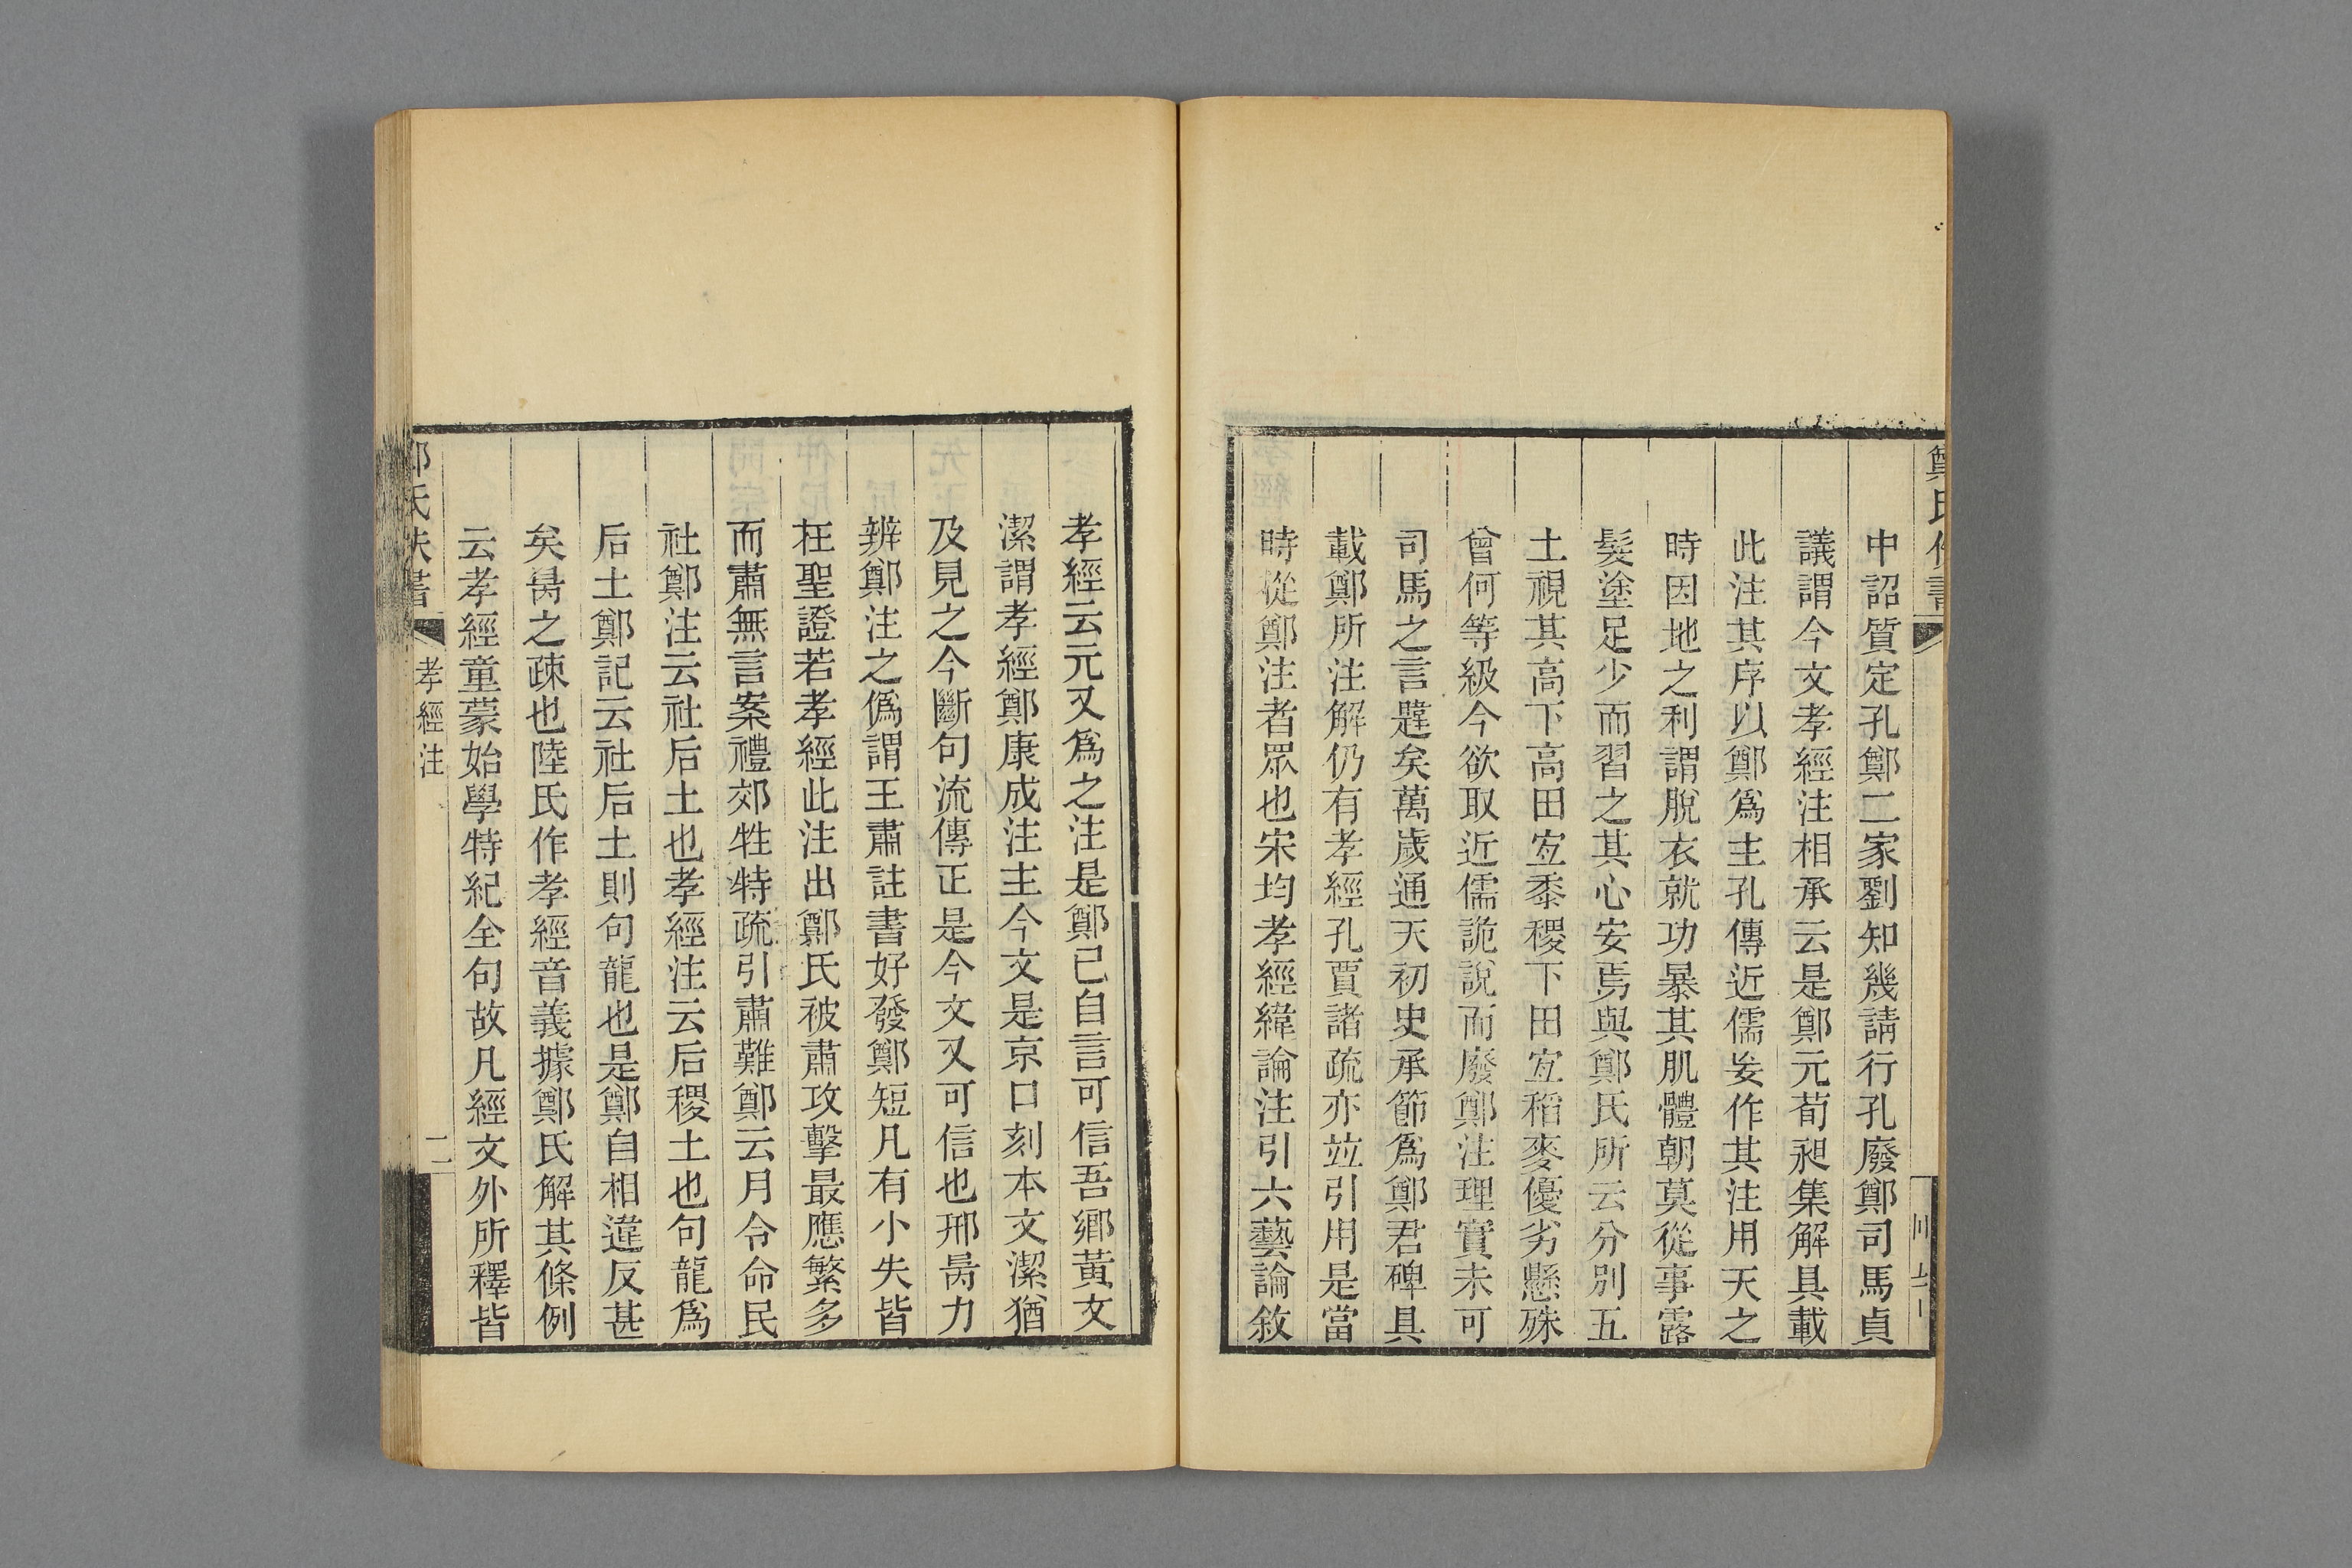 中詔質定孔鄭二家劉知幾請行孔廢鄭司馬貞
議謂今文孝經注相承云是鄭元荀昶集解具載
此注其序以鄭為主孔傳近儒妄作其注用天之
時因地之利謂脫衣就功暴其肌體朝莫從事露
髮塗足少而習之其心安焉與鄭氏所云分別五
土視其高下高田宜黍稷下田宜稻麥優劣懸殊
曾何等級今欲取近儒詭說而廢鄭注理實未可
司馬之言韙矣萬歲通天初史承節為鄭君碑具
載鄭所注解仍有孝經孔賈諸疏亦竝引用是當
時從鄭注者眾也宋均孝經緯論注引六藝論敘
孝經云元又為之注是鄭已自言可信吾鄉黃文
潔謂孝經鄭康成注主今文是京口刻本文潔猶
及見之今斷句流傳正是今文又可信也邢昺力
辨鄭注之偽謂王肅註書好發鄭短凡有小失皆
在聖證若孝經此注出鄭氏被肅攻擊最應繁多
而肅無言案禮郊牲特疏引肅難鄭云月令命民
社鄭注云社后土也孝經注云后稷土也句龍為
后土鄭記云社后土則句龍也是鄭自相違反甚
矣昺之疎也陸氏作孝經音義據鄭氏解其條例
云孝經童蒙始學特紀全句故凡經文外所釋皆
孝經注
二